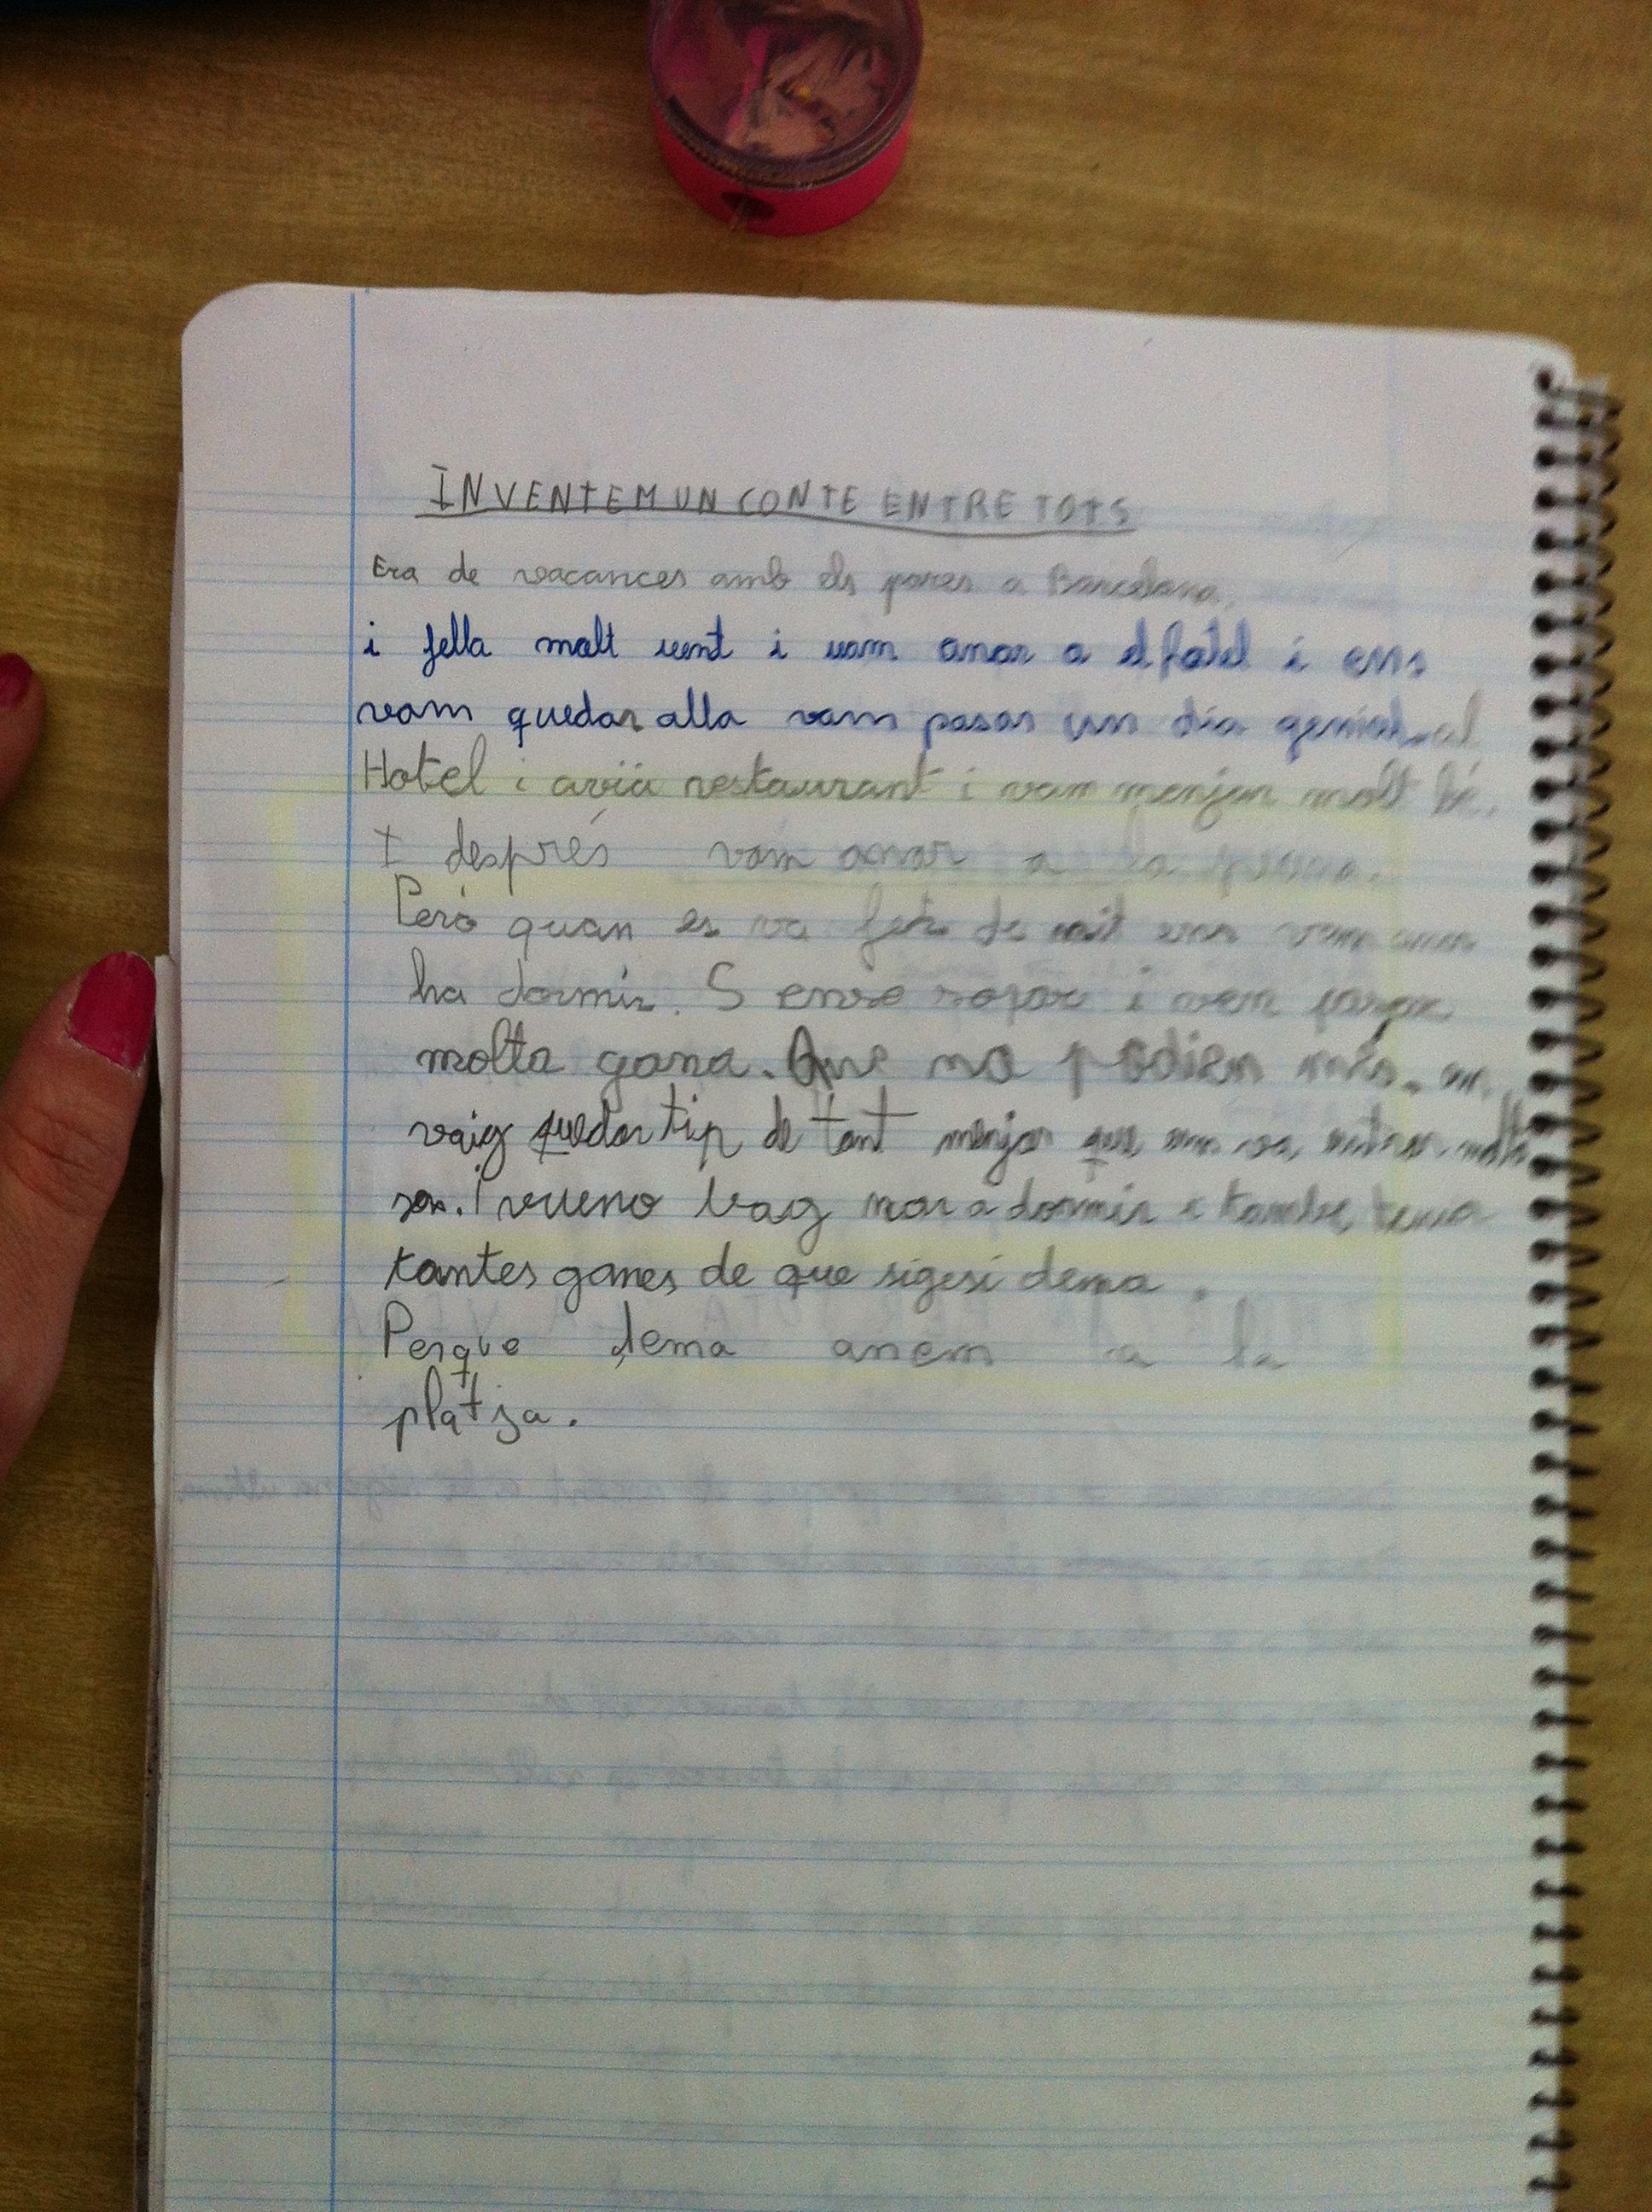 INVENTEM UN CONTE ENTRE TOTS
Era de vacances amb els pares a Barcelona.
i fella molt vent i vam anar a el hotel i ens
vam quedar alla vam pasar un dia genial. al
Hotel i avia restaurant i vam menjar molt bé.
I després vam anar a la
Però quan es va fer de nit ens vam anar
ha dormir. Sense sopar i vem pasar
molta gana. Que no podien més. em
vaig quedar tip de tant menjar que em va entrar molta
son. I vueno vag nar a dormir i tambe tenia
tantes ganes de que sigesi dema.
Perque dema anem a la
platja.